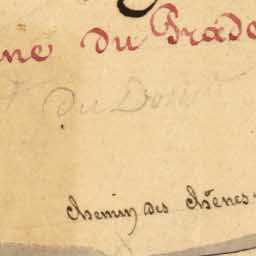 ne du Prado
du
chemin des chênes